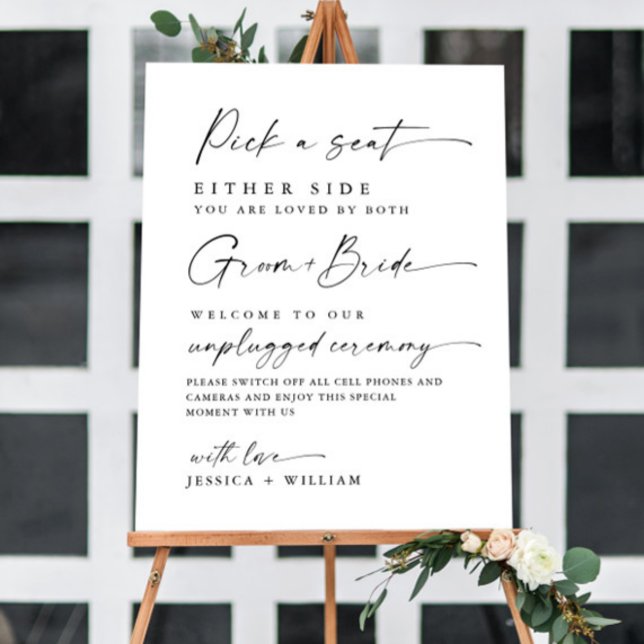 Pick a seat
EITHER SIDE
YOU ARE LOVED BY BOTH
Groom + Bride
WELCOME TO OUR
unplugged ceremony
PLEASE SWITCH OFF ALL CELL PHONES AND
CAMERAS AND ENJOY THIS SPECIAL
MOMENT WITH US
with love
JESSICA + WILLIAM